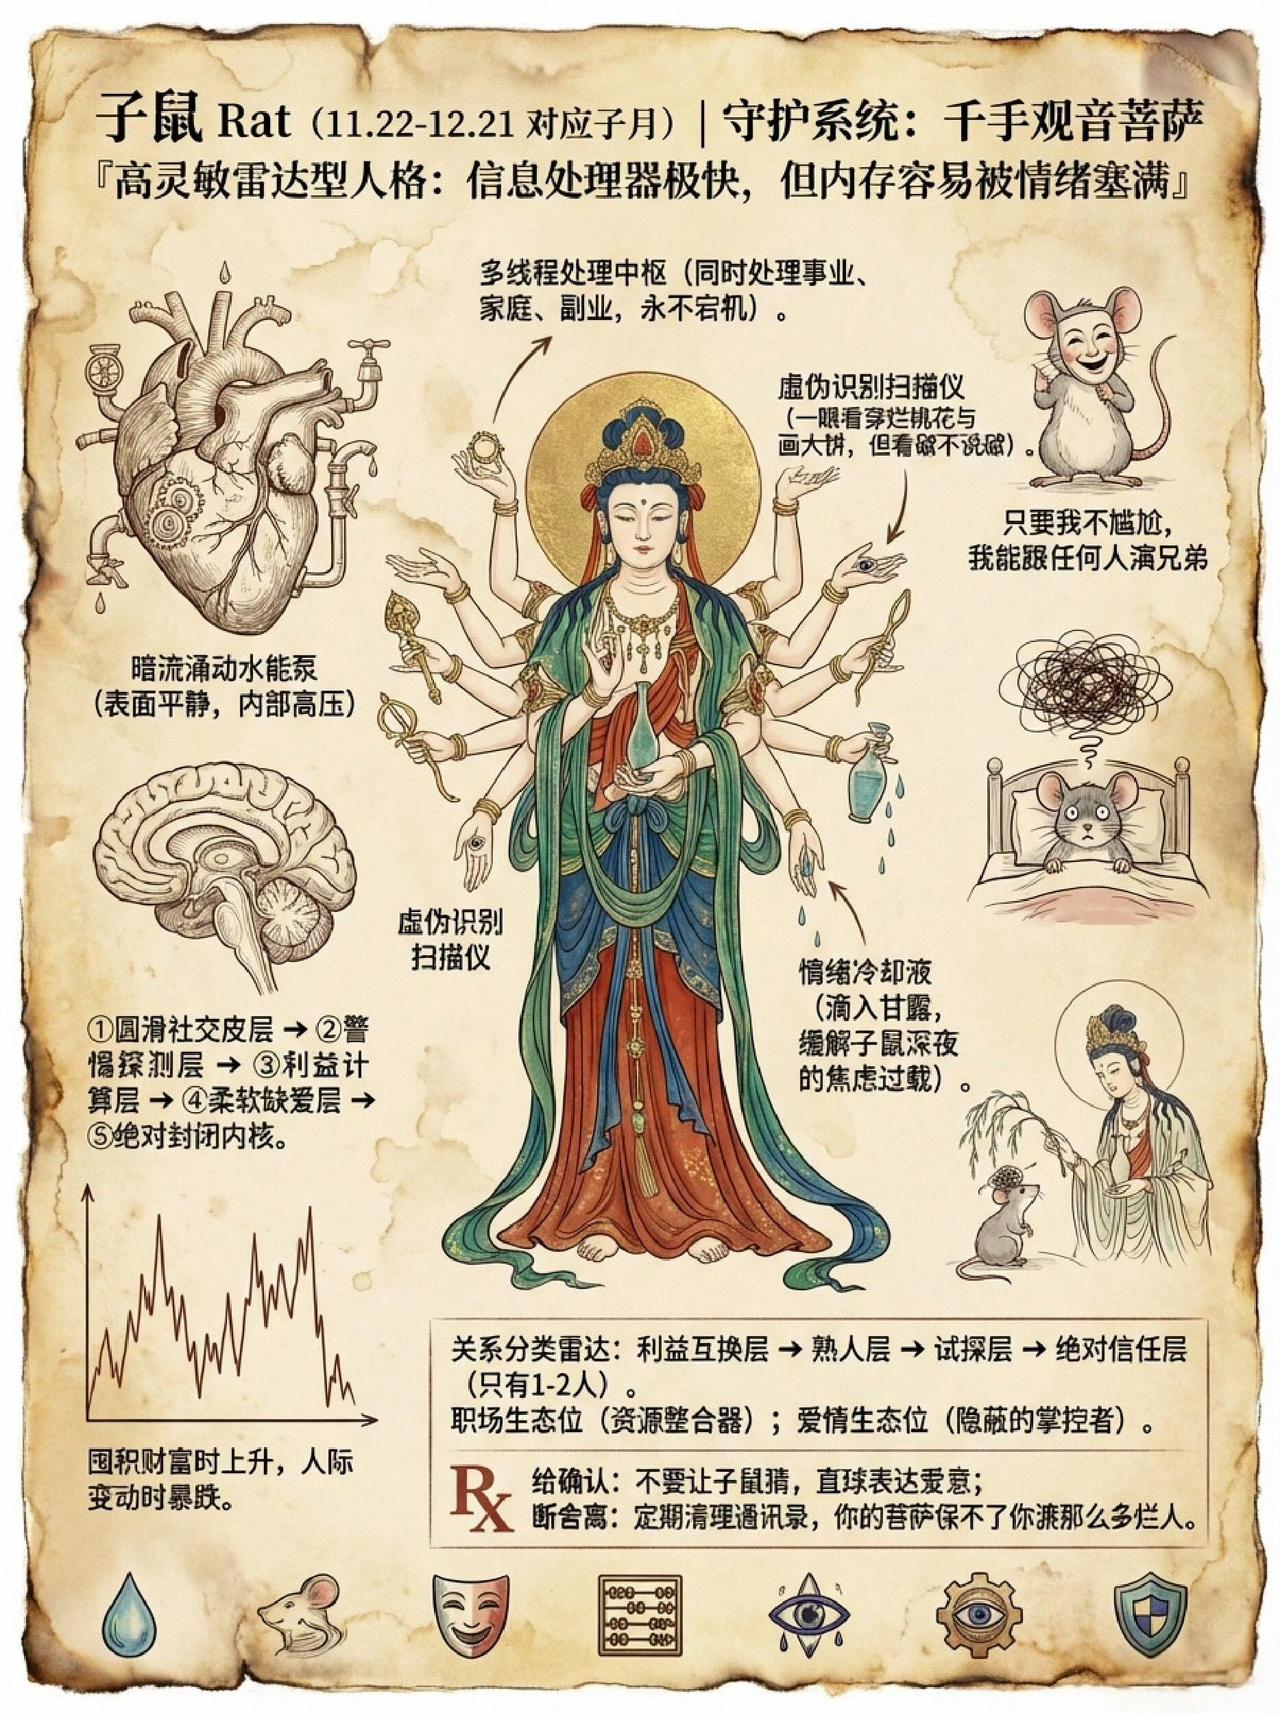 子鼠 Rat（11.22-12.21 对应子月）| 守护系统：千手观音菩萨
『高灵敏雷达型人格：信息处理器极快，但内存容易被情绪塞满』
多线程处理中枢（同时处理事业、
家庭、副业，永不宕机）。
虚伪识别扫描仪
（一眼看穿烂桃花与
画大饼，但看破不说破）。
只要我不尴尬，
我能跟任何人演兄弟
暗流涌动水能泵
（表面平静，内部高压）
虚伪识别
扫描仪
情绪冷却液
（滴入甘露，
缓解子鼠深夜
的焦虑过载）。
①圆滑社交皮层 → ②警
惕探测层 → ③利益计
算层 → ④柔软缺爱层 →
⑤绝对封闭内核。
囤积财富时上升，人际
变动时暴跌。
关系分类雷达：利益互换层 → 熟人层 → 试探层 → 绝对信任层
（只有1-2人）。
职场生态位（资源整合器）；爱情生态位（隐蔽的掌控者）。
Rx
给确认：不要让子鼠猜，直球表达爱意；
断舍离：定期清理通讯录，你的菩萨保不了你渡那么多烂人。